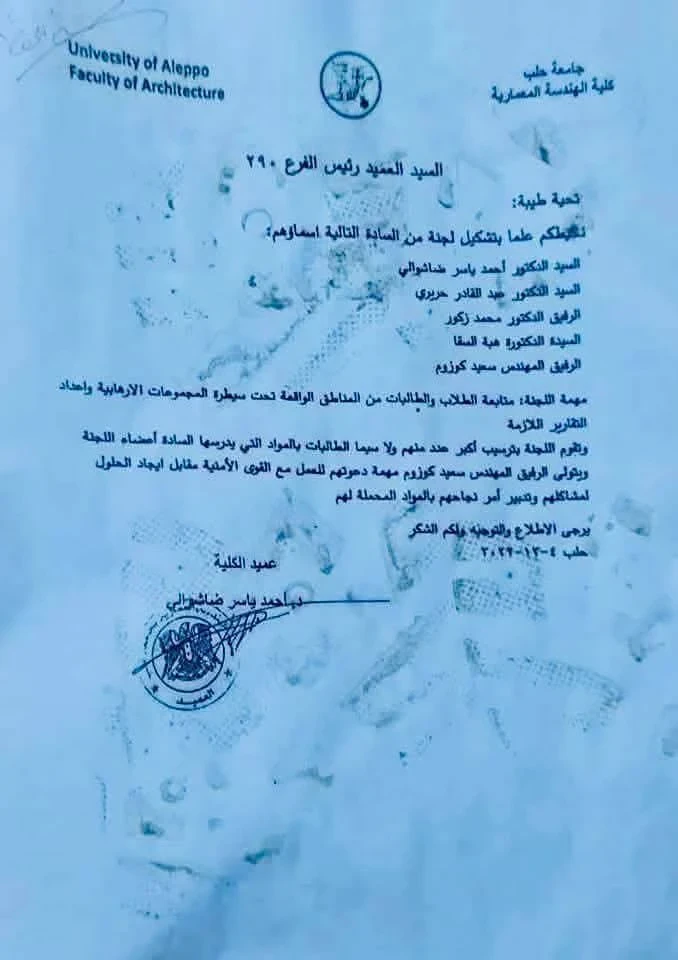 University of Aleppo
Faculty of Architecture
جامعة حلب
كلية الهندسة المعمارية
السيد العميد رئيس الفرع ٢٩٠
تحية طيبة:
نحيطكم علما بتشكيل لجنة من السادة التالية اسماؤهم:
السيد الدكتور أحمد ياسر ضاشوالي
السيد الدكتور عبد القادر حريري
الرفيق الدكتور محمد زكور
السيدة الدكتورة هبة السقا
الرفيق المهندس سعيد كوزوم
مهمة اللجنة: متابعة الطلاب والطالبات من المناطق الواقعة تحت سيطرة المجموعات الارهابية واعداد
التقارير اللازمة
وتقوم اللجنة بترسيب أكبر عدد منهم ولا سيما الطالبات بالمواد التي يدرسها السادة أعضاء اللجنة
ويتولى الرفيق المهندس سعيد كوزوم مهمة دعوتهم للعمل مع القوى الأمنية مقابل ايجاد الحلول
لمشاكلهم وتدبير أمر نجاحهم بالمواد المحملة لهم
يرجى الاطلاع والتوجيه ولكم الشكر
حلب ٤-١٢-٢٠٢٢
عميد الكلية
د.أحمد ياسر ضاشوالي
العميد